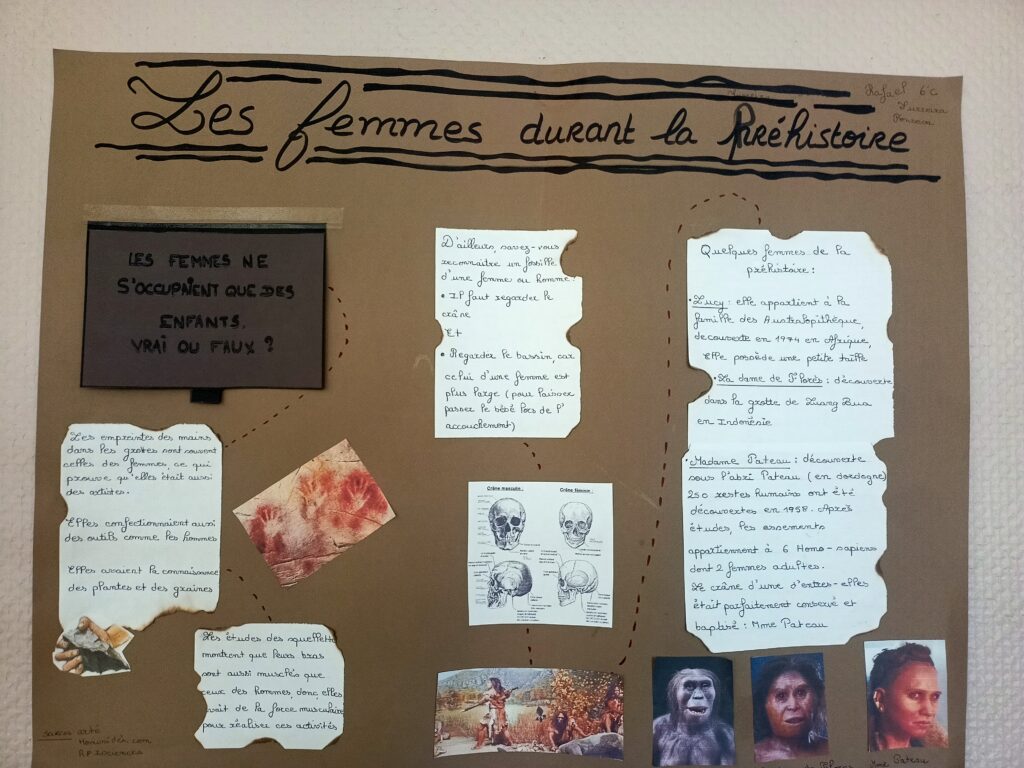 Les femmes durant la Préhistoire
Rafaël 6°C
LES FEMMES NE
S'OCCUPAIENT QUE DES
ENFANTS.
VRAI OU FAUX ?
Les empreintes des mains
dans les grottes sont souvent
celles des femmes, ce qui
prouve qu'elles était aussi
des artistes.
Elles confectionnaient aussi
des outils comme les hommes
Elles avaient la connaissance
des plantes et des graines
Les études des squelettes
montrent que leurs bras
sont aussi musclés que
ceux des hommes, donc elles
avait de la force musculaire
pour réaliser ces activités
sources arte
Hominidés.com
D'ailleurs, savez-vous
reconnaître un fossille
d'une femme ou homme.
• Il faut regarder le
crâne
Et
• Regarder le bassin, car
celui d'une femme est
plus large (pour laisser
passer le bébé lors de l'
accouchement)
Crâne masculin :
Crâne féminin :
Quelques femmes de la
préhistoire :
• Lucy : elle appartient à la
famille des Australopithèque,
decouverte en 1974 en Afrique,
Elle possède une petite taille
• La dame de Florès : découverte
dans la grotte de Luang Bua
en Indonésie
• Madame Pateau : découverte
sous l'abri Pateau (en dordogne)
250 restes humains ont été
découvertes en 1958. Après
études, les ossements
appartiennent à 6 Homo-sapiens
dont 2 femmes adultes.
Le crâne d'une d'entres-elles
était parfaitement conservé et
baptisé : Mme Pateau
Mme Pateau